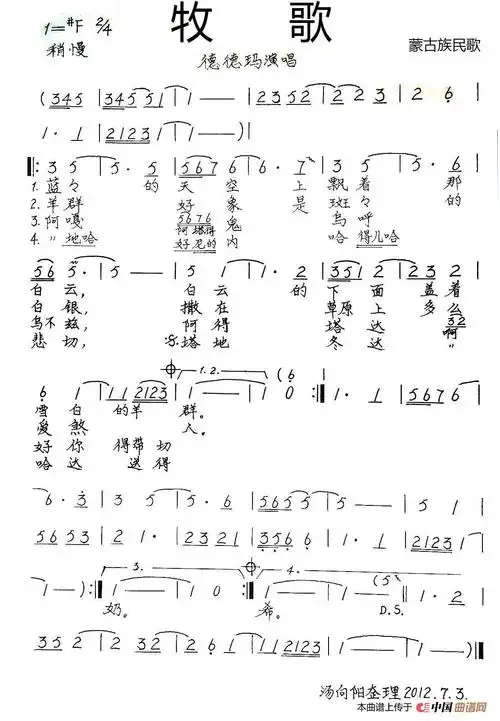 牧 歌
1=#F 2/4
稍慢
德德玛演唱
蒙古族民歌
(345 345 5 1 | 1 — — | 2 2 3 2 2 3 | 2 · 6 |
1 · 1 | 2123 1 | 1 — )|
‖: 3 5 | 5 · 5 | 567 6 | 6 · 6 | 3 5 | 5 · 6 |
1.蓝々 的 天 空 上 飘 着 那
2.羊群 好 象 是 斑 々 的
3.阿嘎 5676 鬼 乌 呼
阿塔得
4.〃地哈 好尼的 内 哈 得儿哈
56 5 · | 5 1 | 1 · 2 | 3 5 1 2 | 2 3 2 |
白云, 白云 的 下 面 盖着
白银, 撒在 草原上 多么
乌不兹, 阿得 塔 达 32 啊
悲切, 塔地 冬 达 〃
1.2.
6 1 | 1 1 2123 | 1 — | 1 0 :‖ 1 · 1 | 567 6 |
雪白 的羊 群。
爱煞 人。
好你 得带切
哈达 送得
6 · 3 | 3 5 | 5 · 6 | 565 5 | 5 — | 5 1 |
5653 | 2 · | 2321 | 5 6 5 3 | 6 · 1 | 2123 1 |
3. 4.
1 — ):‖ 1 — | 1 0 :‖ 1 — | 1 — (5 ‖
奶。 希。 D.S.
352 | 2 1 2 | 2 3 2 | 6 1 | 1 2123 | 1 — | 1 — )‖
汤向阳整理2012.7.3.
本曲谱上传于 中国曲谱网